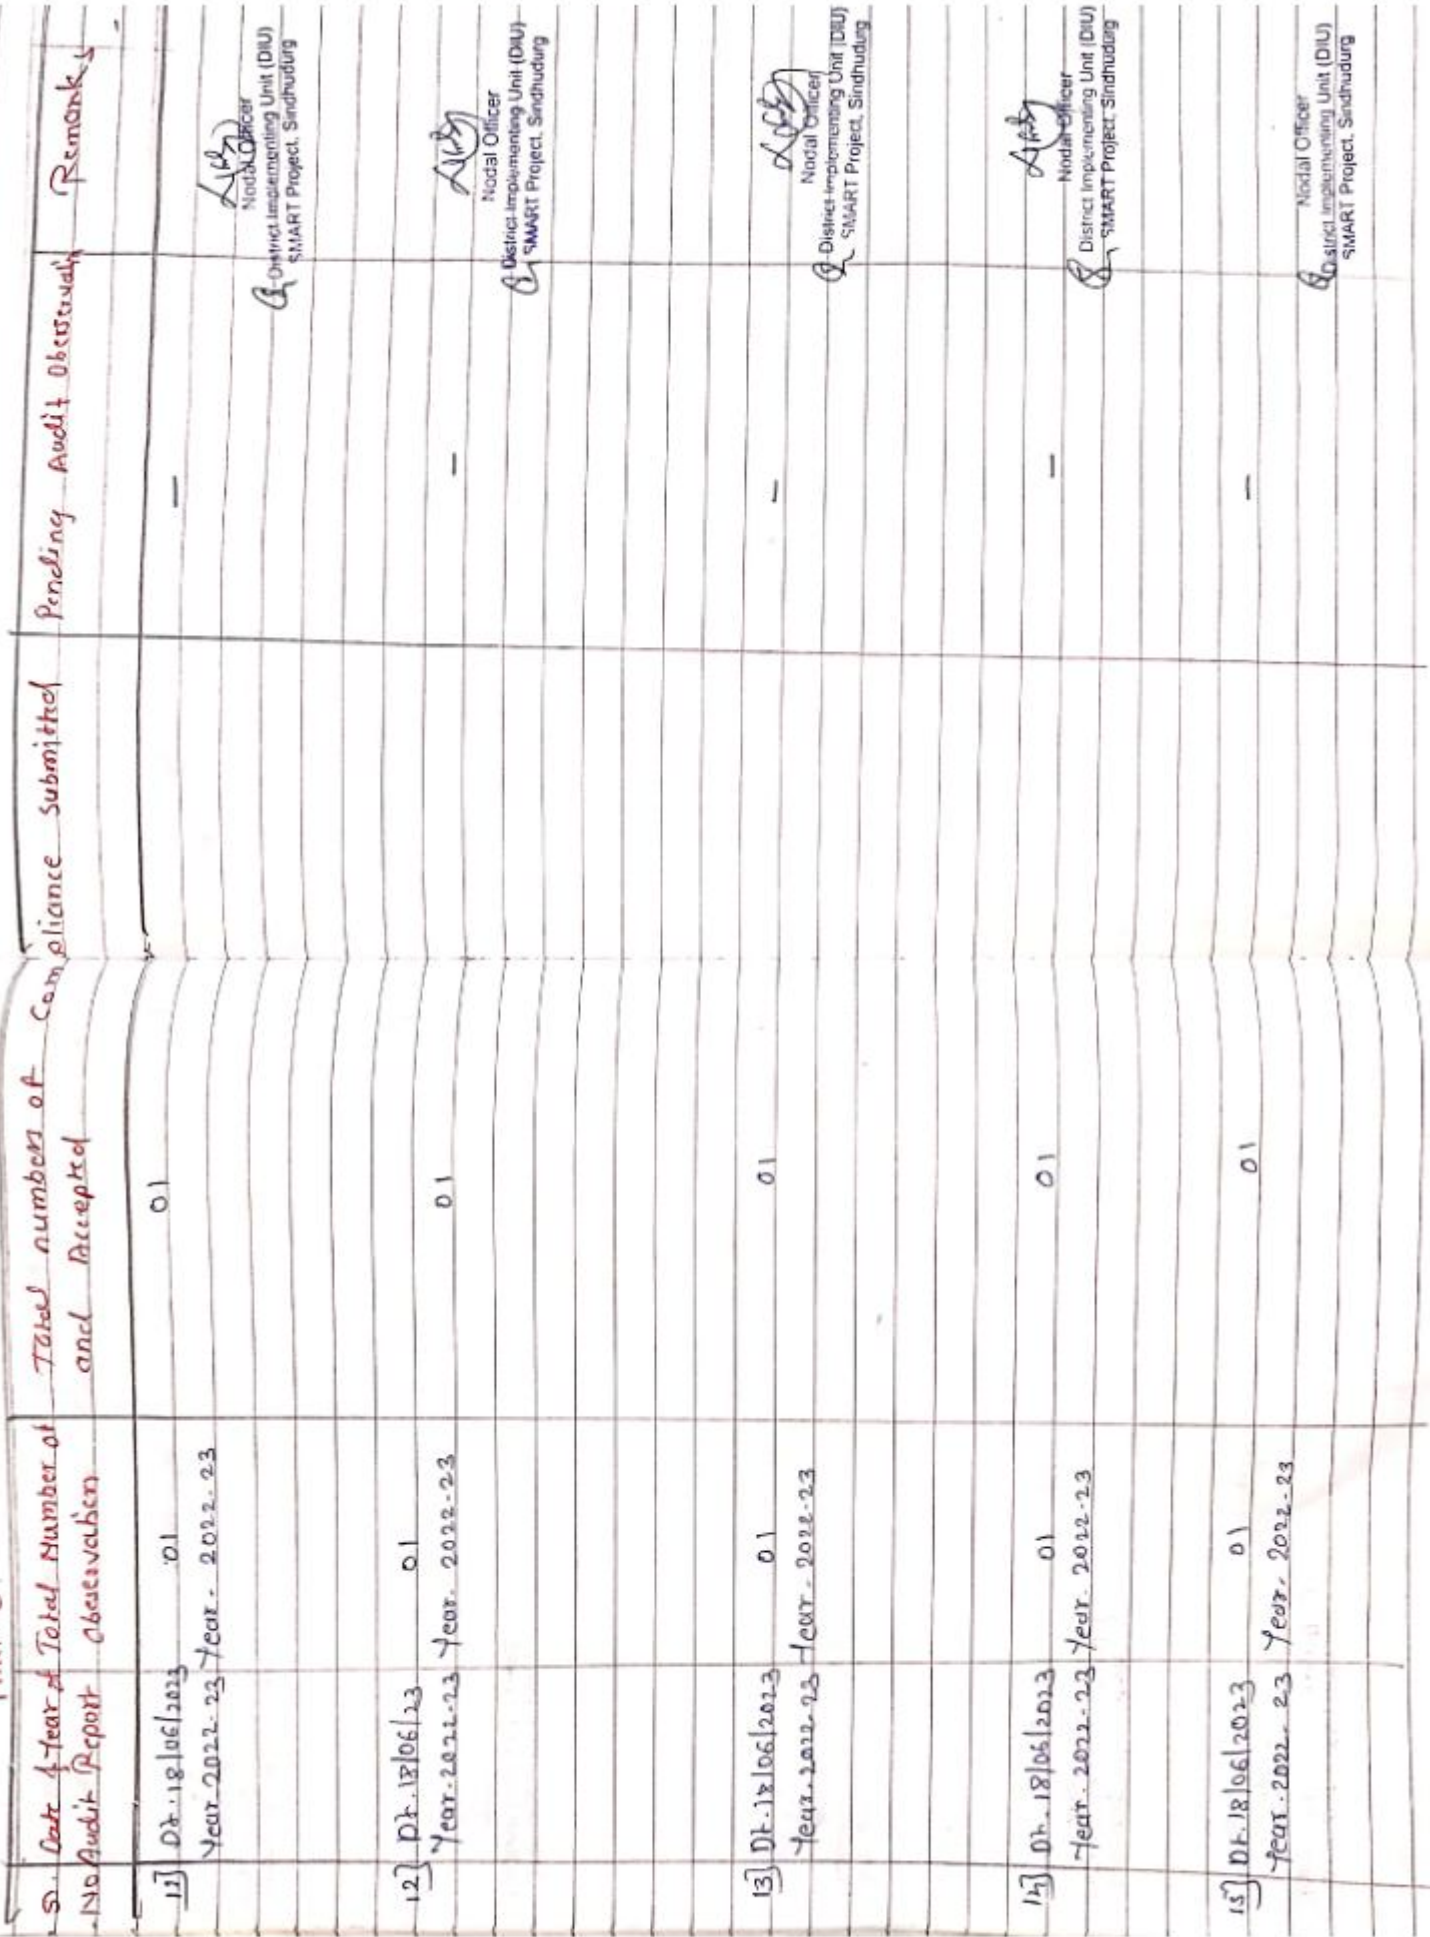 S. Date & Year of Total Number of Total number of Compliance submitted Pending Audit Oberservati Remarks
No Audit Report Oberservation and Accepted
11] Dt. 18/06/2023 01 01 –
Year 2022-23 Year - 2022-23
Nodal Officer
District Implementing Unit (DIU)
SMART Project, Sindhudurg
12] Dt. 18/06/23 01 01 –
Year - 2022-23 Year - 2022-23
Nodal Officer
District Implementing Unit (DIU)
SMART Project, Sindhudurg
13] Dt. 18/06/2023 01 01 –
Year. 2022-23 Year - 2022-23
Nodal Officer
District Implementing Unit (DIU)
SMART Project, Sindhudurg
14] Dt. 18/06/2023 01 01 –
Year - 2022-23 Year. 2022-23
Nodal Officer
District Implementing Unit (DIU)
SMART Project, Sindhudurg
15] Dt. 18/06/2023 01 01 –
Year - 2022-23 Year. 2022-23
Nodal Officer
District Implementing Unit (DIU)
SMART Project, Sindhudurg